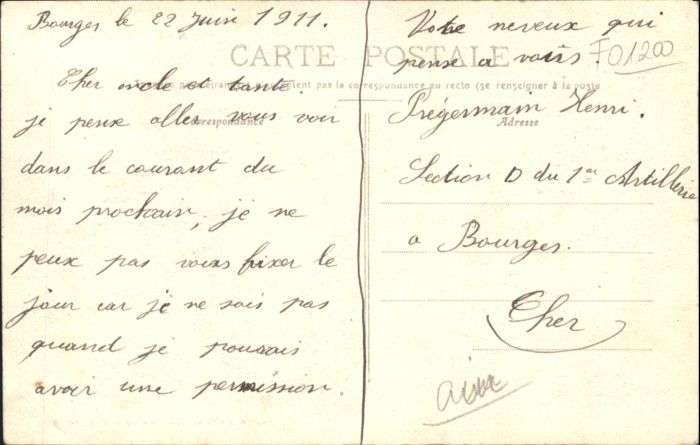 Bourges le 22 Juin 1911.
CARTE POSTALE
Cher oncle et tante.
correspondance
je peux aller vous voir
dans le courant du
mois prochain, je ne
peux pas vous fixer le
jour car je ne sais pas
quand je pourais
avoir une permission.
Votre neveux qui
pense a vous.
F01200
la correspondance au recto (se renseigner à la poste
Prégermain Henri.
Adresse
Section D du 1er Artillerie
a Bourges.
Cher